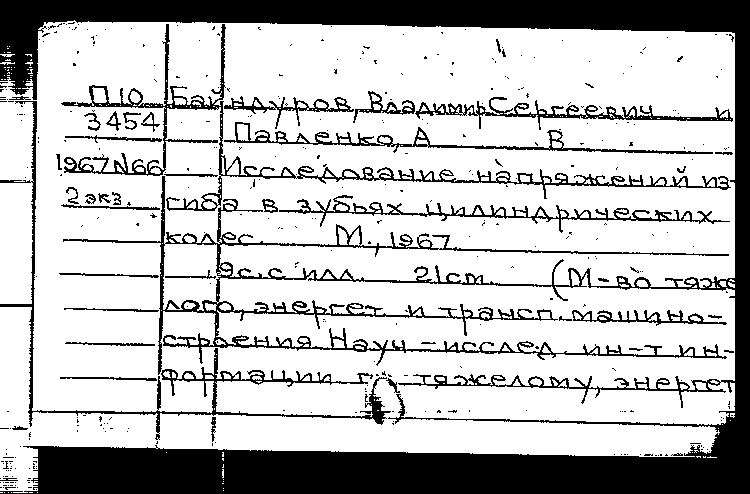 П10 Байндуров, Владимир Сергеевич и
3454 Павленко, А В.
1967N66 Исследование напряжений из-
2 экз. гиба в зубьях цилиндрических
колес. М., 1967
19с. с илл. 21см. (М-во тяже
лого, энергет и трансп. машино-
строения Науч-исслед ин-т ин-
формации тяжелому, энергет